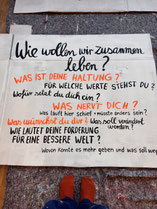 Wie wollen wir zusammen
leben?
WAS IST DEINE HALTUNG?
FÜR WELCHE WERTE STEHST DU?
Wofür setzt du dich ein?
WAS NERVT DICH?
Was läuft hier schief + müsste anders sein?
Was wünschst du dir? Was soll verändert
werden?
WIE LAUTET DEINE FORDERUNG
FÜR EINE BESSERE WELT?
Wovon könnte es mehr geben und was soll weg